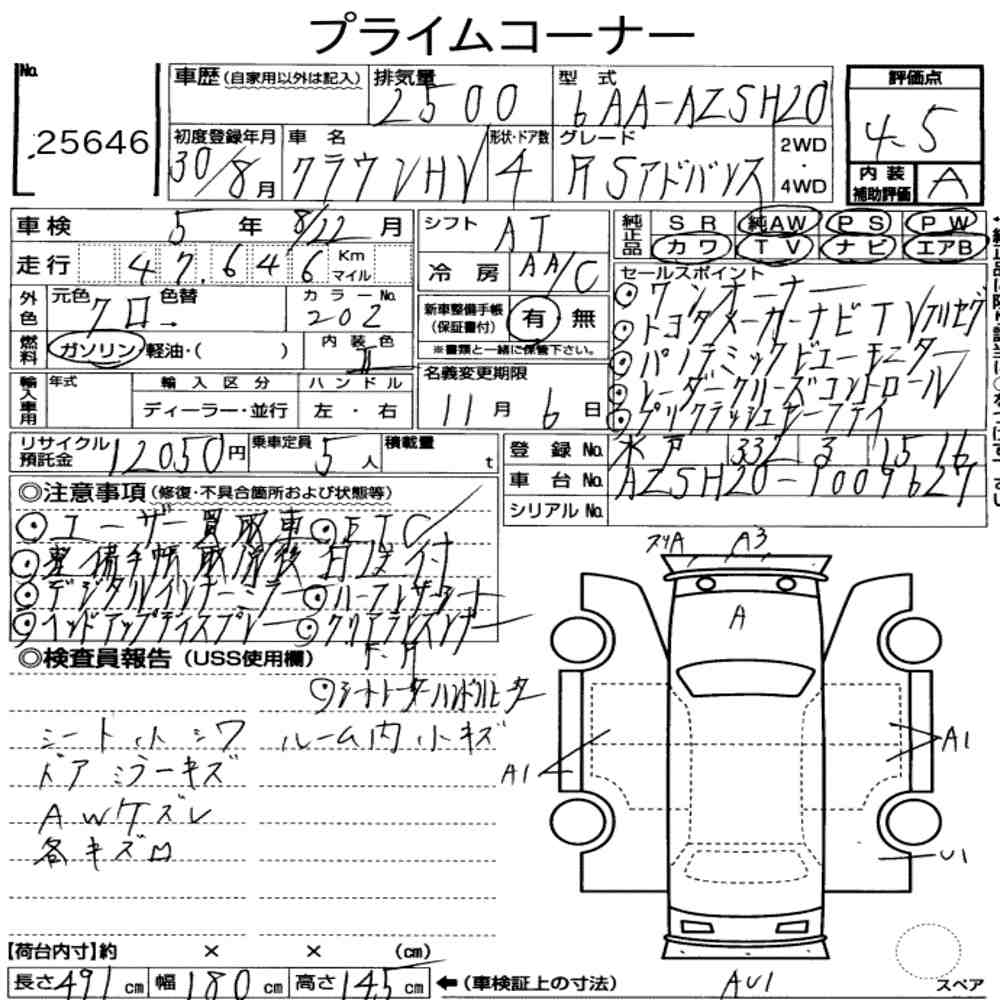 プライムコーナー
No.
25646
車歴 (自家用以外は記入)
排気量
2500
型式
6AA-AZSH20
評価点
4.5
初度登録年月
30/8月
車名
クラウンHV
形状・ドア数
4
グレード
RSアドバンス
2WD
・
4WD
内装
補助評価
A
車検 5年 8/22月
シフト AT
純正品
SR 純AW PS PW
カワ TV ナビ エアB
走行 47,646 Km マイル
冷房 AA/C
外色
元色 クロ 色替
カラーNo.
202
新車整備手帳
(保証書付)
有 無
※書類と一緒に保管下さい。
セールスポイント
ワンオーナー
トヨタメーカーナビTVフルセグ
パノラミックビューモニター
レーダークルーズコントロール
プリクラッシュセーフティ
燃料
ガソリン・軽油・( )
内装色
輸入車用
年式
輸入区分
ディーラー・並行
ハンドル
左・右
名義変更期限
11月 6日
リサイクル
預託金
12050円
乗車定員
5人
積載量
t
登録No. 水戸 332 3 1516
車台No. AZSH20-1009627
シリアルNo.
◎注意事項 (修復・不具合箇所および状態等)
ユーザー買取車 ETC
整備手帳取得後日送付
デジタルインナーミラー ハーフレザーシート
ヘッドアップディスプレー クリアランスソナー
F・R
シートヒーターハンドルヒーター
◎検査員報告 (USS使用欄)
シート小シワ ルーム内小キズ
ドアミラーキズ
AWケズレ
各キズロ
A3
A
A1
A1
U1
AU1
スペア
【荷台内寸】約 × × (cm)
長さ491cm 幅180cm 高さ145cm
←(車検証上の寸法)